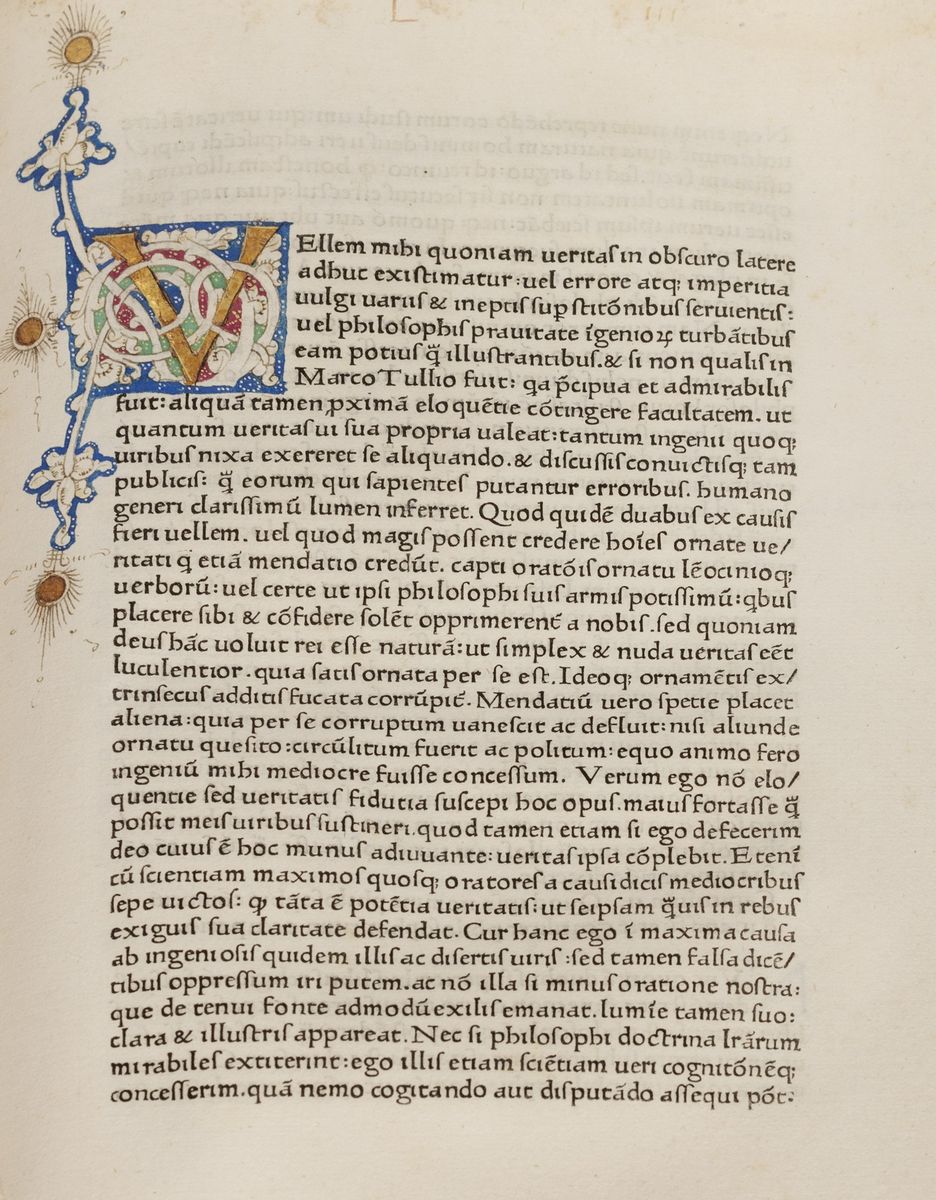 VEllem mihi quoniam ueritas in obscuro latere
adhuc existimatur: uel errore atq; imperitia
uulgi uariis & ineptis supstitõnibus seruientis:
uel philosophis prauitate ĩgenioꝝ turbãtibus
eam potius q̃ illustrantibus. & si non qualis in
Marco Tullio fuit: qa p̃cipua et admirabilis
fuit: aliquã tamen ꝓximã eloquẽtie cõtingere facultatem. ut
quantum ueritas ui sua propria ualeat: tantum ingenii quoq;
uiribus nixa exereret se aliquando. & discussis conuictisq; tam
publicis: q̃ eorum qui sapientes putantur erroribus. humano
generi clarissimũ lumen inferret. Quod quidẽ duabus ex causis
fieri uellem. uel quod magis possent credere hoĩes ornate ue/
ritati q̇ etiã mendatio credũt. capti oratõis ornatu lẽocinioq;
uerborũ: uel certe ut ipsi philosophi suis armis potissimũ: qbus
placere sibi & cõfidere solẽt opprimerent̃ a nobis. sed quoniam
deus hãc uoluit rei esse naturã: ut simplex & nuda ueritas eẽt
luculentior. quia satis ornata per se est. Ideoq; ornamẽtis ex/
trinsecus additis fucata corrũpit̃. Mendatiũ uero spetie placet
aliena: quia per se corruptum uanescit ac defluit: nisi aliunde
ornatu quesito: circũlitum fuerit ac politum: equo animo fero
ingeniũ mihi mediocre fuisse concessum. Verum ego nõ elo/
quentie sed ueritatis fidutia suscepi hoc opus. maius fortasse q̃
possit meis uiribus sustineri. quod tamen etiam si ego defecerim
deo cuius ẽ hoc munus adiuuante: ueritas ipsa cõplebit. Etenĩ
cũ scientiam maximos quosq; oratores a causidicis mediocribus
sepe uictos: ꝙ tãta ẽ potẽtia ueritatis: ut seipsam q̃uis in rebus
exiguis sua claritate defendat. Cur hanc ego ĩ maxima causa
ab ingeniosis quidem illis ac disertis uiris: sed tamen falsa dicẽ/
tibus oppressum iri putem. ac nõ illa si minus oratione nostra:
que de tenui fonte admodũ exilis emanat. lumĩe tamen suo:
clara & illustris appareat. Nec si philosophi doctrina lr̃arum
mirabiles extiterint: ego illis etiam sciẽtiam ueri cognitõnẽq;
concesserim. quã nemo cogitando aut disputãdo assequi põt: